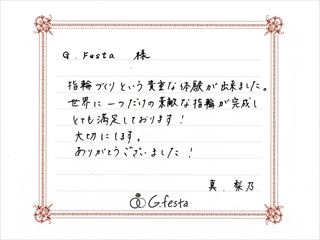 G.Festa 様
指輪づくりという貴重な体験が出来ました。
世界に一つだけの素敵な指輪が完成し
とても満足しております！
大切にします。
ありがとうございました！
真. 梨乃
G.festa